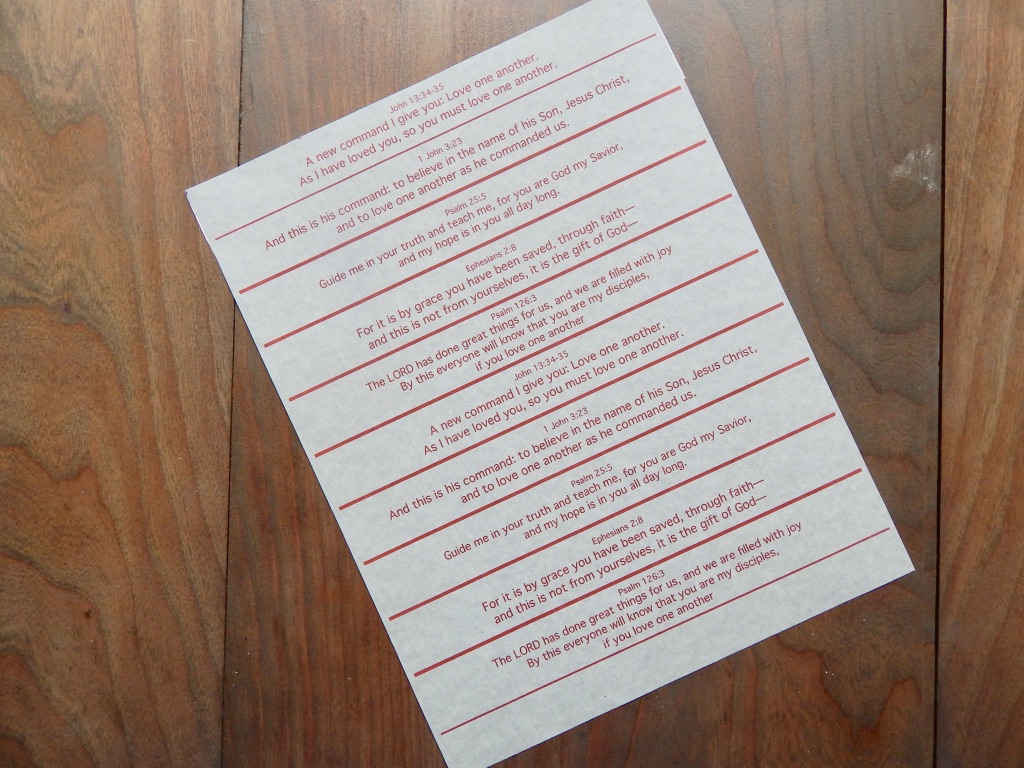 John 13:34-35
A new command I give you: Love one another.
As I have loved you, so you must love one another.
1 John 3:23
And this is his command: to believe in the name of his Son, Jesus Christ,
and to love one another as he commanded us.
Psalm 25:5
Guide me in your truth and teach me, for you are God my Savior,
and my hope is in you all day long.
Ephesians 2:8
For it is by grace you have been saved, through faith—
and this is not from yourselves, it is the gift of God—
Psalm 126:3
The LORD has done great things for us, and we are filled with joy
By this everyone will know that you are my disciples,
if you love one another
John 13:34-35
A new command I give you: Love one another.
As I have loved you, so you must love one another.
1 John 3:23
And this is his command: to believe in the name of his Son, Jesus Christ,
and to love one another as he commanded us.
Psalm 25:5
Guide me in your truth and teach me, for you are God my Savior,
and my hope is in you all day long.
Ephesians 2:8
For it is by grace you have been saved, through faith—
and this is not from yourselves, it is the gift of God—
Psalm 126:3
The LORD has done great things for us, and we are filled with joy
By this everyone will know that you are my disciples,
if you love one another